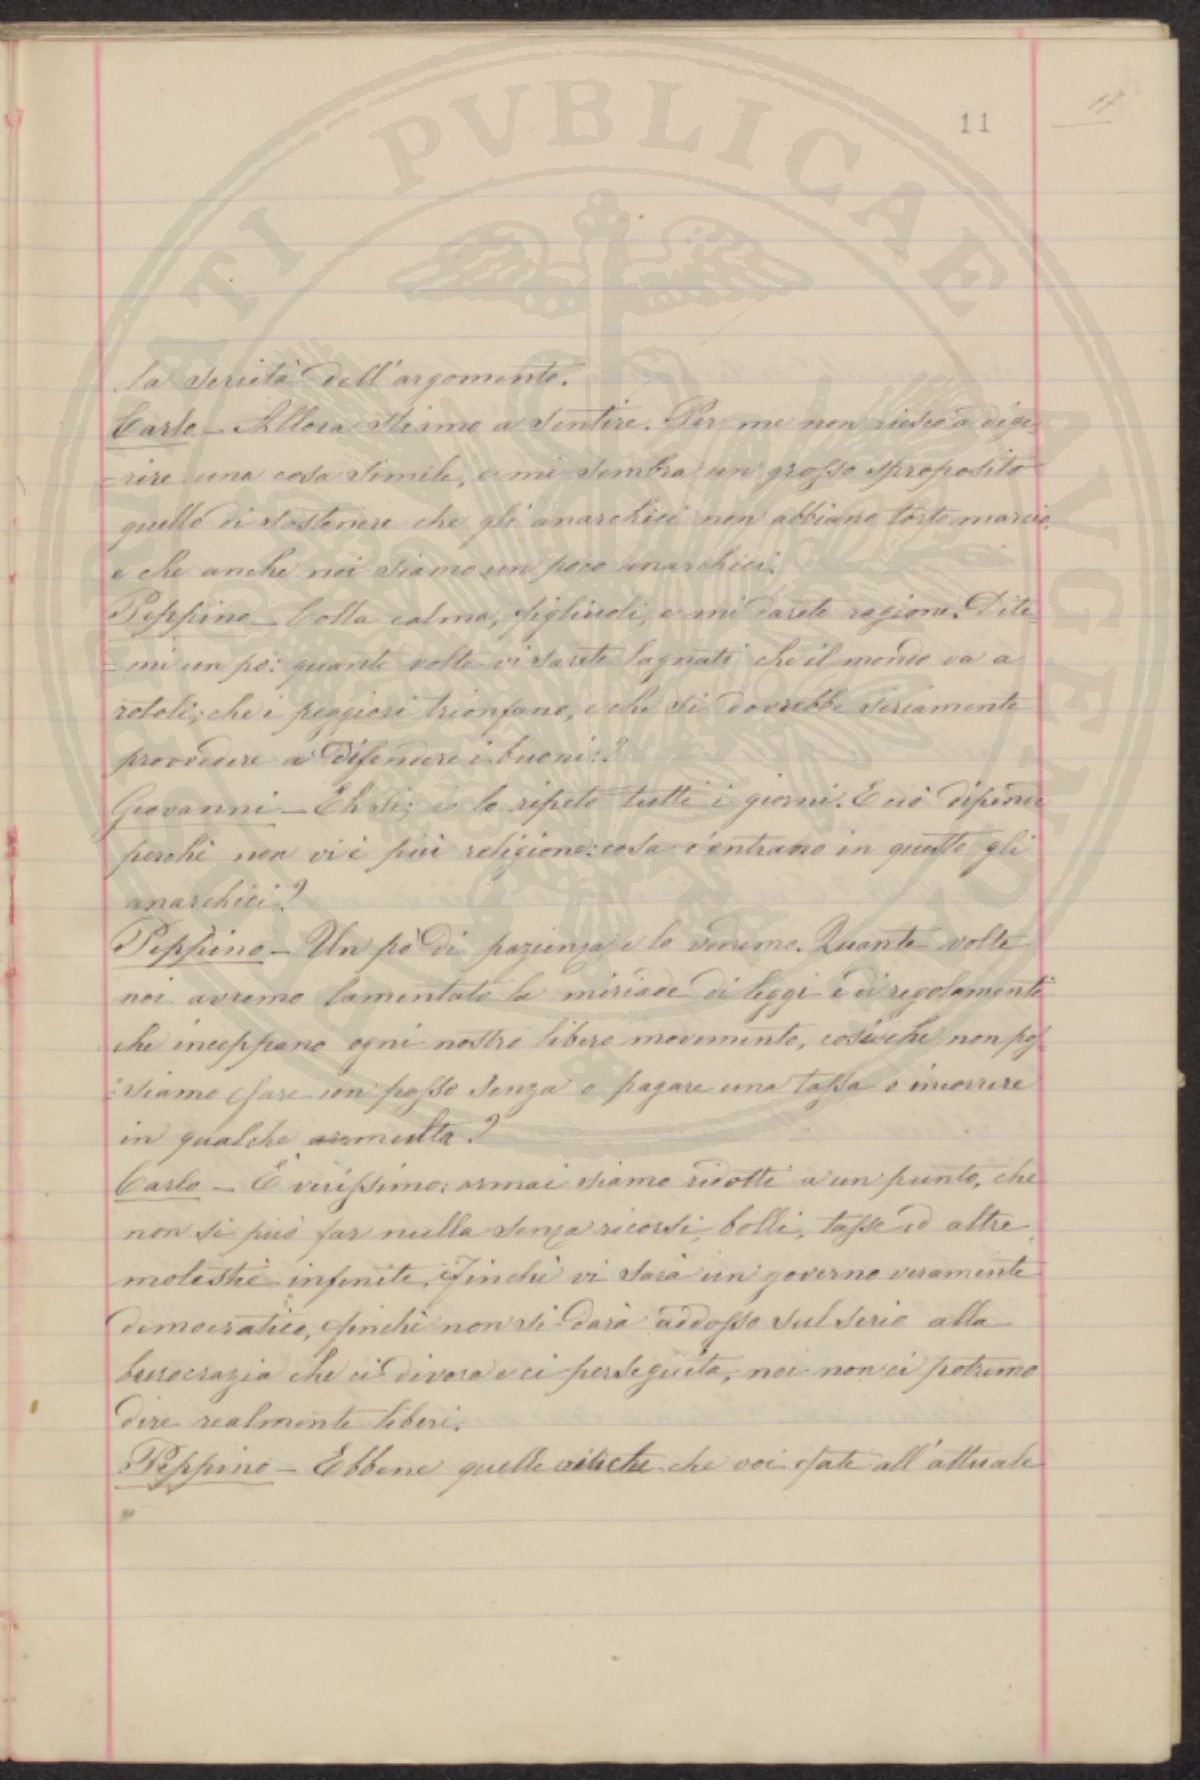 11
17
la serietà dell'argomento.
Carlo - Allora stiamo a sentire. Per me non riesco a dige-
=rire una cosa simile, e mi sembra un grosso sproposito
quello di sostenere che gli anarchici non abbiano torto marcio,
e che anche noi siamo un poco anarchici.
Peppino - Colla calma, figliuoli, e mi darete ragione. Dite
=mi un pò: quante volte vi sarete lagnati che il mondo va a
rotoli; che i peggiori trionfano, e che si dovrebbe seriamente
provvedere a difendere i buoni?
Giovanni - Eh sì; io lo ripeto tutti i giorni. E ciò dipende
perché non vi è più religione: cosa c'entrano in questo gli
anarchici?
Peppino - Un pò di pazienza e lo vedremo. Quante volte
noi avremo lamentato la miriade di leggi e di regolamenti
che inceppano ogni nostro libero movimento, cosicché non pos-
=siamo fare un passo senza o pagare una tassa o incorrere
in qualche multa?
Carlo - È verissimo: ormai siamo ridotti a un punto, che
non si può far nulla senza ricorsi, bolli, tasse ed altre
molestie infinite. Finché vi sarà un governo veramente
democratico, finché non si darà addosso sul serio alla
burocrazia che ci divora e ci perseguita, noi non ci potremo
dire realmente liberi.
Peppino - Ebbene quelle critiche che voi fate all'attuale
PUBLICAE